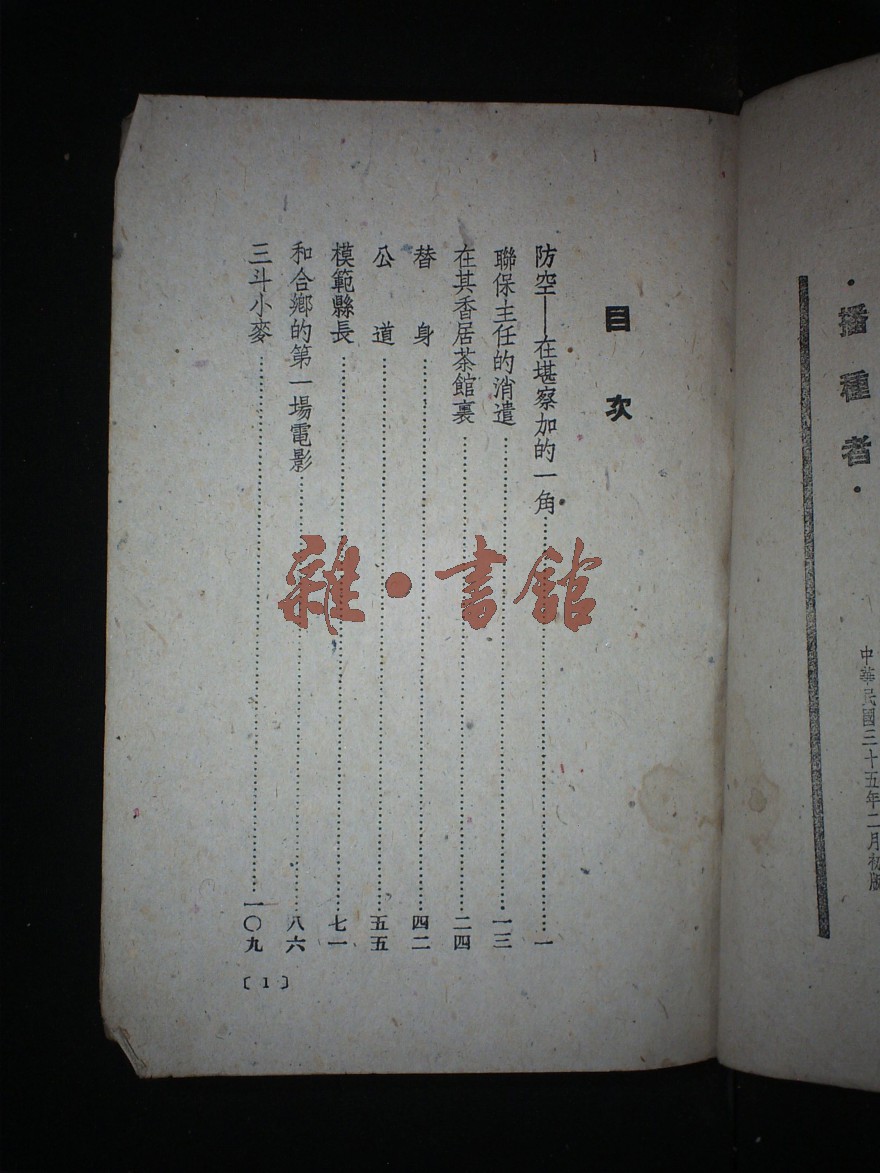 ·播種者·
中華民國三十五年二月初版
目次
防空——在堪察加的一角……一
聯保主任的消遣……一三
在其香居茶館裏……二四
替身……四二
公道……五五
模範縣長……七一
和合鄉的第一場電影……八六
三斗小麥……一〇九
〔1〕
雜·書館